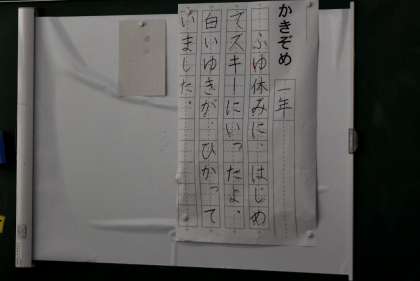 かきぞめ
一年
ふゆ休みに、はじめ
てスキーにいったよ、
白いゆきが、ひかって
いました。